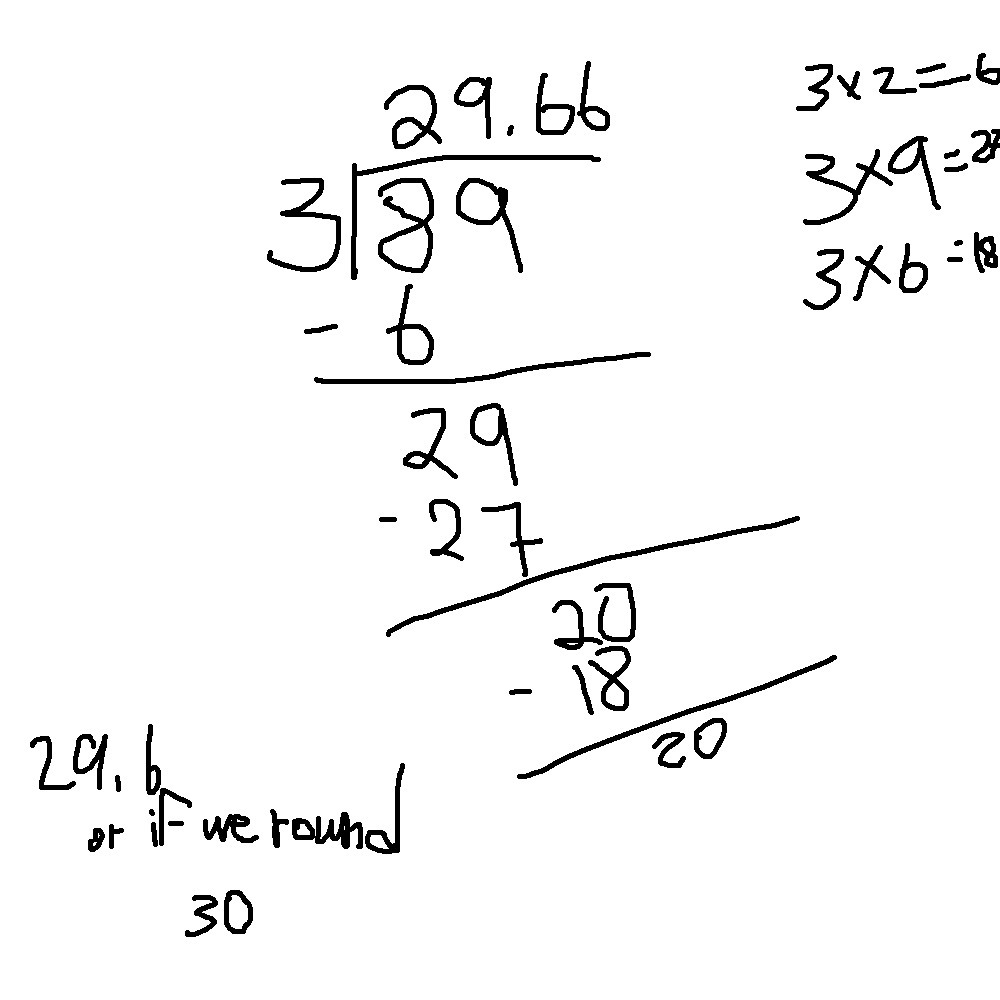 29.66
3 89
- 6
29
- 27
20
- 18
20
3×2=6
3×9=27
3×6=18
29.6
or if we round
30